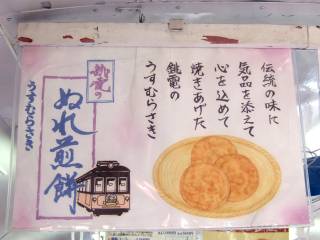 伝統の味に
気品を添えて
心を込めて
焼きあげた
銚電の
うすむらさき
銚電の
ぬれ煎餅
うすむらさき